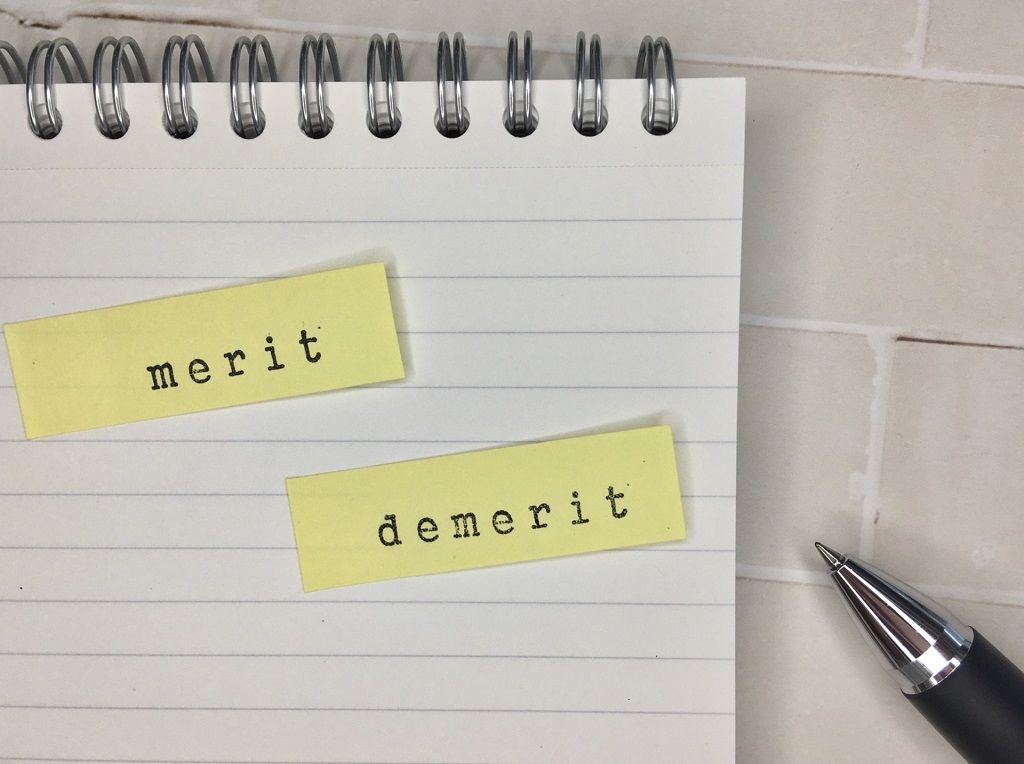 merit
demerit